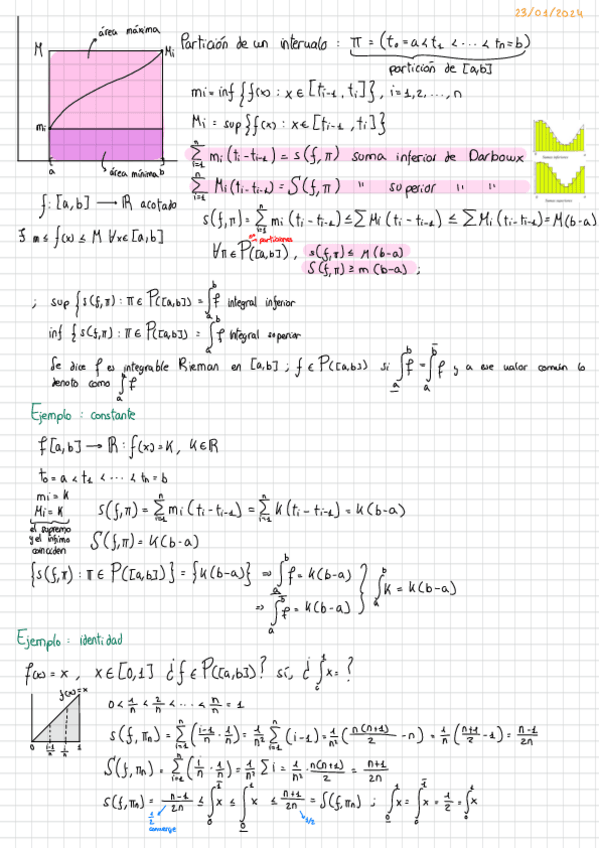 23/01/2024
área máxima
M
Mi
mi
a
área mínima
b
Partición de un intervalo : π = (t₀ = a < t₁ < ... < tn = b)
partición de [a,b]
mi = inf {f(x) : x ∈ [ti-1, ti]}, i = 1,2, ..., n
Mi = sup {f(x) : x ∈ [ti-1, ti]}
∑ᵢ₌₁ⁿ mi (ti - ti-1) = s(f, π) suma inferior de Darboux
∑ᵢ₌₁ⁿ Mi (ti - ti-1) = S(f, π) " superior " "
f: [a,b] → ℝ acotado
s(f, π) = ∑ᵢ₌₁ⁿ mi (ti - ti-1) ≤ ∑ Mi (ti - ti-1) ≤ ∑ Mi (ti - ti-1) = M(b-a)
m ≤ f(x) ≤ M ∀x ∈ [a,b]
particiones
∀π ∈ P([a,b]), s(f, π) ≤ M(b-a)
S(f, π) ≥ m(b-a) ;
; sup {s(f, π) : π ∈ P([a,b])} = ∫ₐᵇ f integral inferior
inf {s(f, π) : π ∈ P([a,b])} = ∫ₐᵇ f integral superior
Se dice f es integrable Rieman en [a,b] ; f ∈ P([a,b]) si ∫ₐᵇ f = ∫ₐᵇ f y a ese valor común lo
denoto como ∫ₐᵇ f
Ejemplo : constante
f [a,b] → ℝ : f(x) = K, K ∈ ℝ
t₀ = a < t₁ < ... < tn = b
mi = K
Mi = K
el supremo
y el ínfimo
coinciden
s(f, π) = ∑ᵢ₌₁ⁿ mi (ti - ti-1) = ∑ᵢ₌₁ⁿ K (ti - ti-1) = K(b-a)
S(f, π) = K(b-a)
{s(f, π) : π ∈ P([a,b])} = {K(b-a)} ⇒ ∫ₐᵇ f = K(b-a)
⇒ ∫ₐᵇ f = K(b-a) } ∫ₐᵇ K = K(b-a)
Ejemplo : identidad
f(x) = x , x ∈ [0,1] ¿f ∈ P([a,b])? sí, ¿∫₀¹ x = ?
f(x) = x
0 i-1/n i/n 1
0 < 1/n < 2/n < ... < n/n = 1
s(f, πn) = ∑ᵢ₌₁ⁿ (i-1/n · 1/n) = 1/n² ∑ᵢ₌₁ⁿ (i-1) = 1/n² (n(n+1)/2 - n) = 1/n (n+1/2 - 1) = n-1/2n
S(f, πn) = ∑ᵢ₌₁ⁿ (i/n · 1/n) = 1/n² ∑ i = 1/n² · n(n+1)/2 = n+1/2n
s(f, πn) = n-1/2n ≤ ∫₀¹ x ≤ ∫₀¹ x ≤ n+1/2n = S(f, πn) ; ∫₀¹ x = ∫₀¹ x = 1/2 = ∫₀¹ x
1/2
converge
1/2